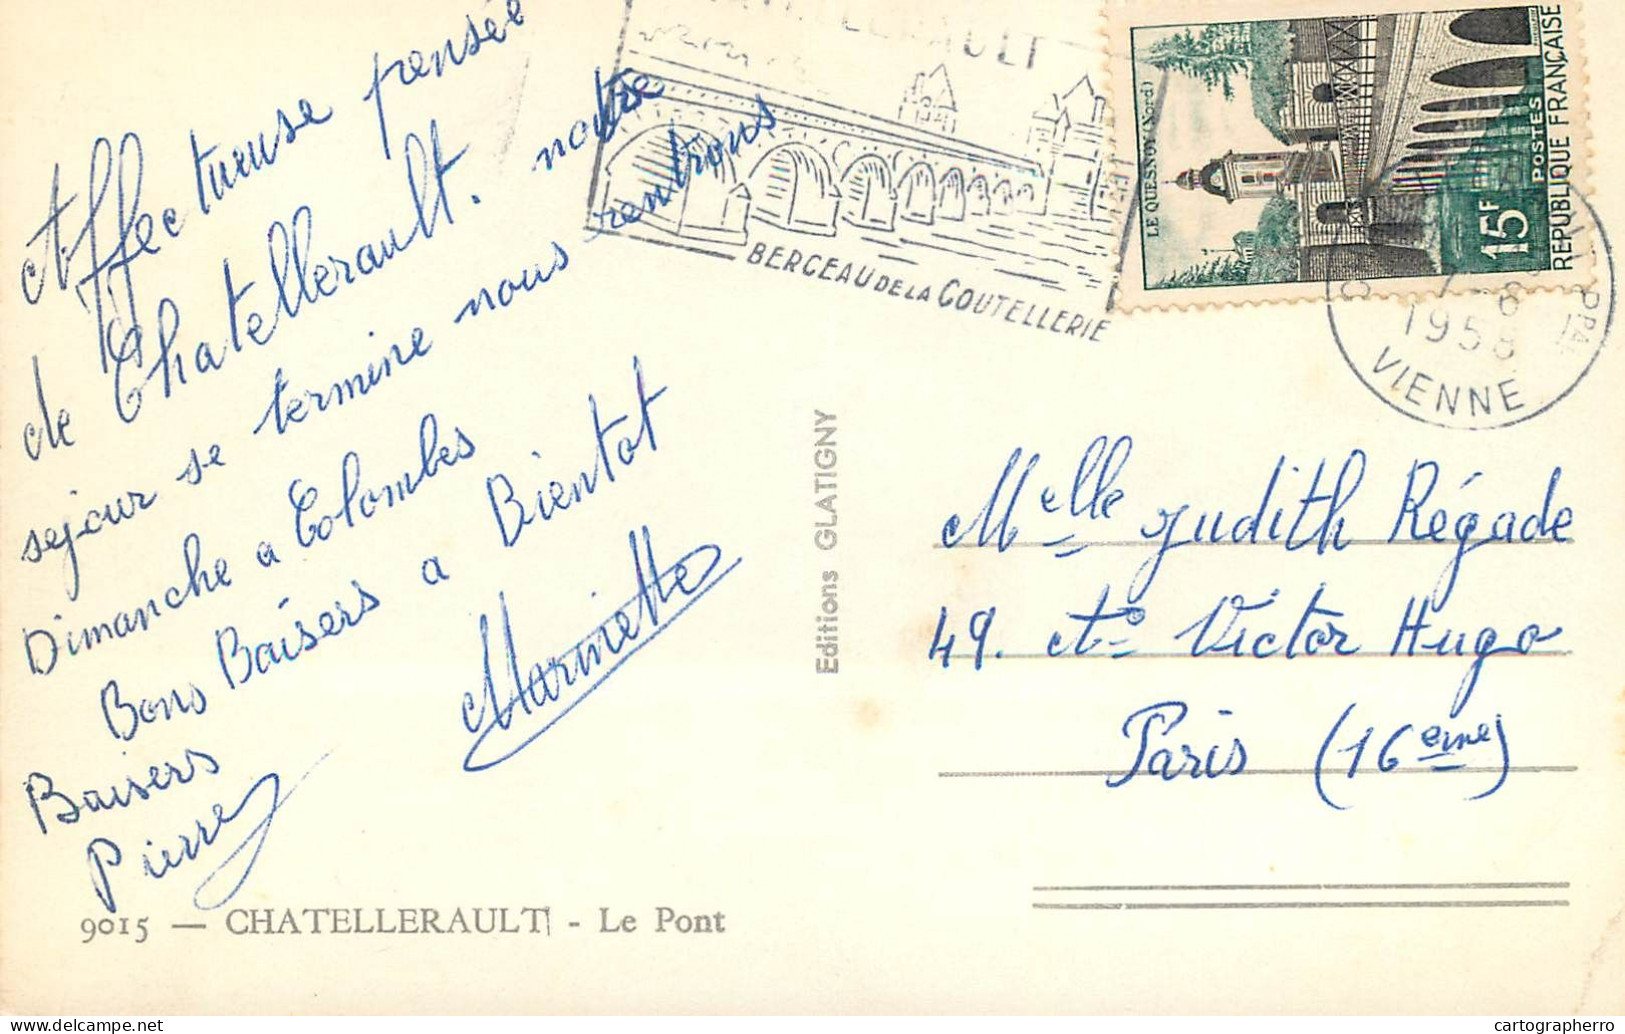 Affectueuse pensée
de Chatellerault. notre
sejour se termine nous rentrons
Dimanche a Colombes
Bons Baisers a Bientot
Marinette
Baisers
Pierre
9015 — CHATELLERAULT - Le Pont
Editions GLATIGNY
BERCEAU DE LA COUTELLERIE
LE QUESNOY (Nord)
15F
POSTES
REPUBLIQUE FRANÇAISE
1958
VIENNE
Melle Judith Régade
49. Av. Victor Hugo
Paris (16eme)
www.delcampe.net
cartographerro